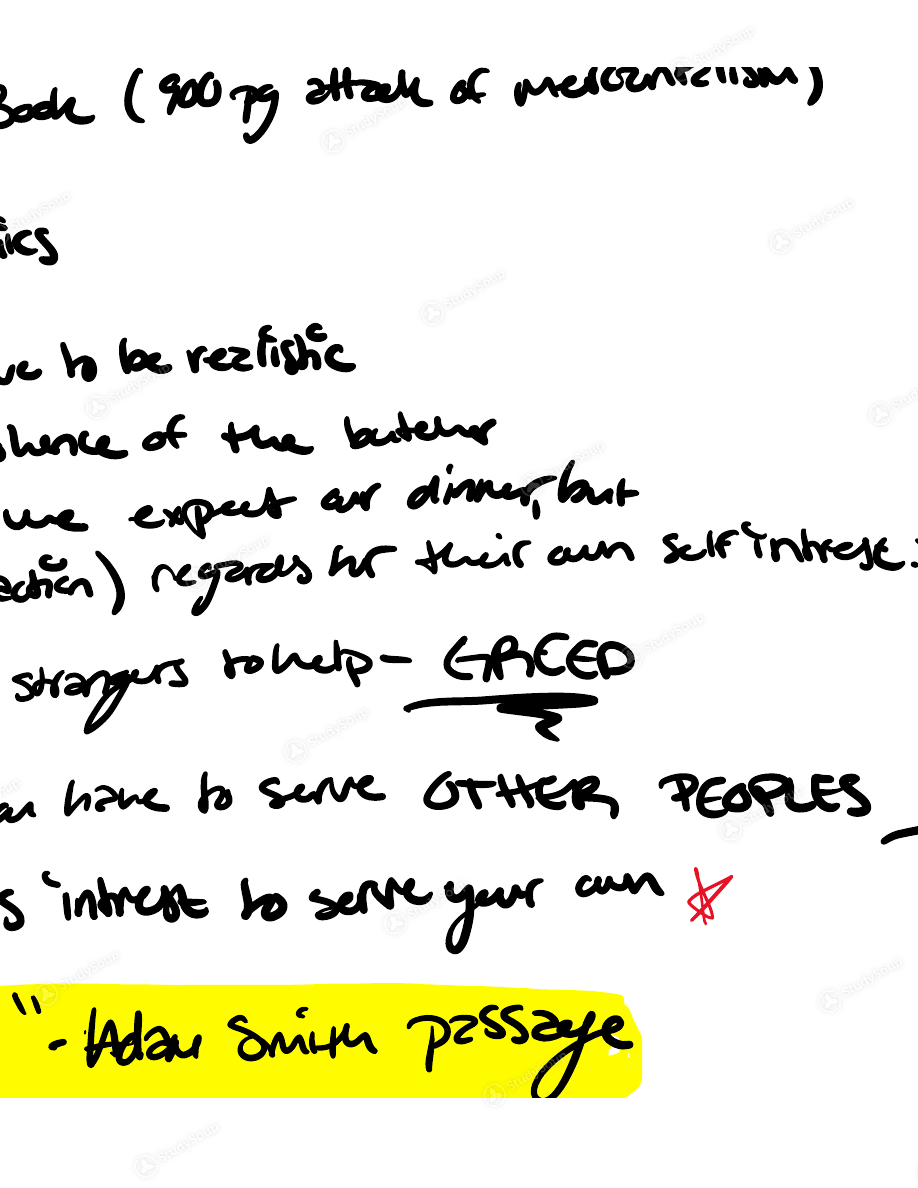 Book (900 pg attack of mercantilism)
ics
ve to be realistic
of the butcher
we expect our dinner, but
action) regards for their own self intrest.
strangers to help - GREED
have to serve OTHER PEOPLES
s intrest to serve your own
" - Adam Smith passage